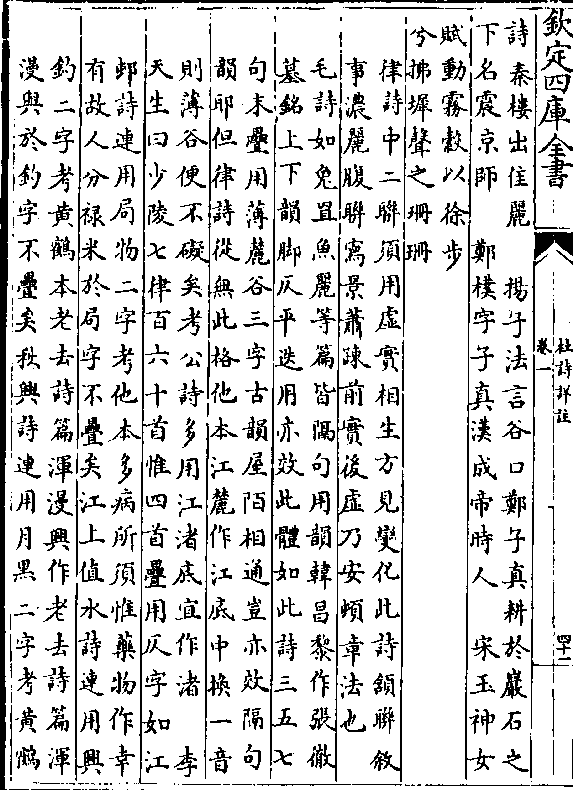 欽定四庫全書
杜詩詳註
卷一
四十二
詩秦樓出佳麗　揚子法言谷口鄭子真耕於巖石之
下名震京師　鄭樸字子真漢成帝時人　宋玉神女
賦動霧縠以徐步
兮拂墀聲之珊珊
律詩中二聯須用虛實相生方見變化此詩頷聯敘
事濃麗腹聯寫景蕭疎前實後虛乃安頓章法也
毛詩如兔罝魚麗等篇皆隔句用韻韓昌黎作張徹
墓銘上下韻脚仄平迭用亦效此體如此詩三五七
句末疊用薄麓谷三字古韻屋陌相通豈亦效隔句
韻耶但律詩從無此格他本江麓作江底中換一音
則薄谷便不礙矣考公詩多用江渚底宜作渚　李
天生曰少陵七律百六十首惟四首疊用仄字如江
邨詩連用局物二字考他本多病所須惟藥物作幸
有故人分禄米於局字不疊矣江上值水詩連用興
釣二字考黃鶴本老去詩篇渾漫興作老去詩篇渾
漫與於釣字不疊矣秋興詩連用月黑二字考黃鶴